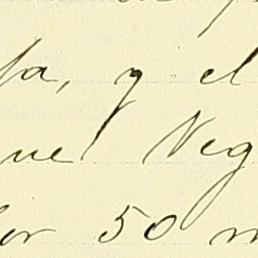 fa, y el
ue Neg
or 50 m